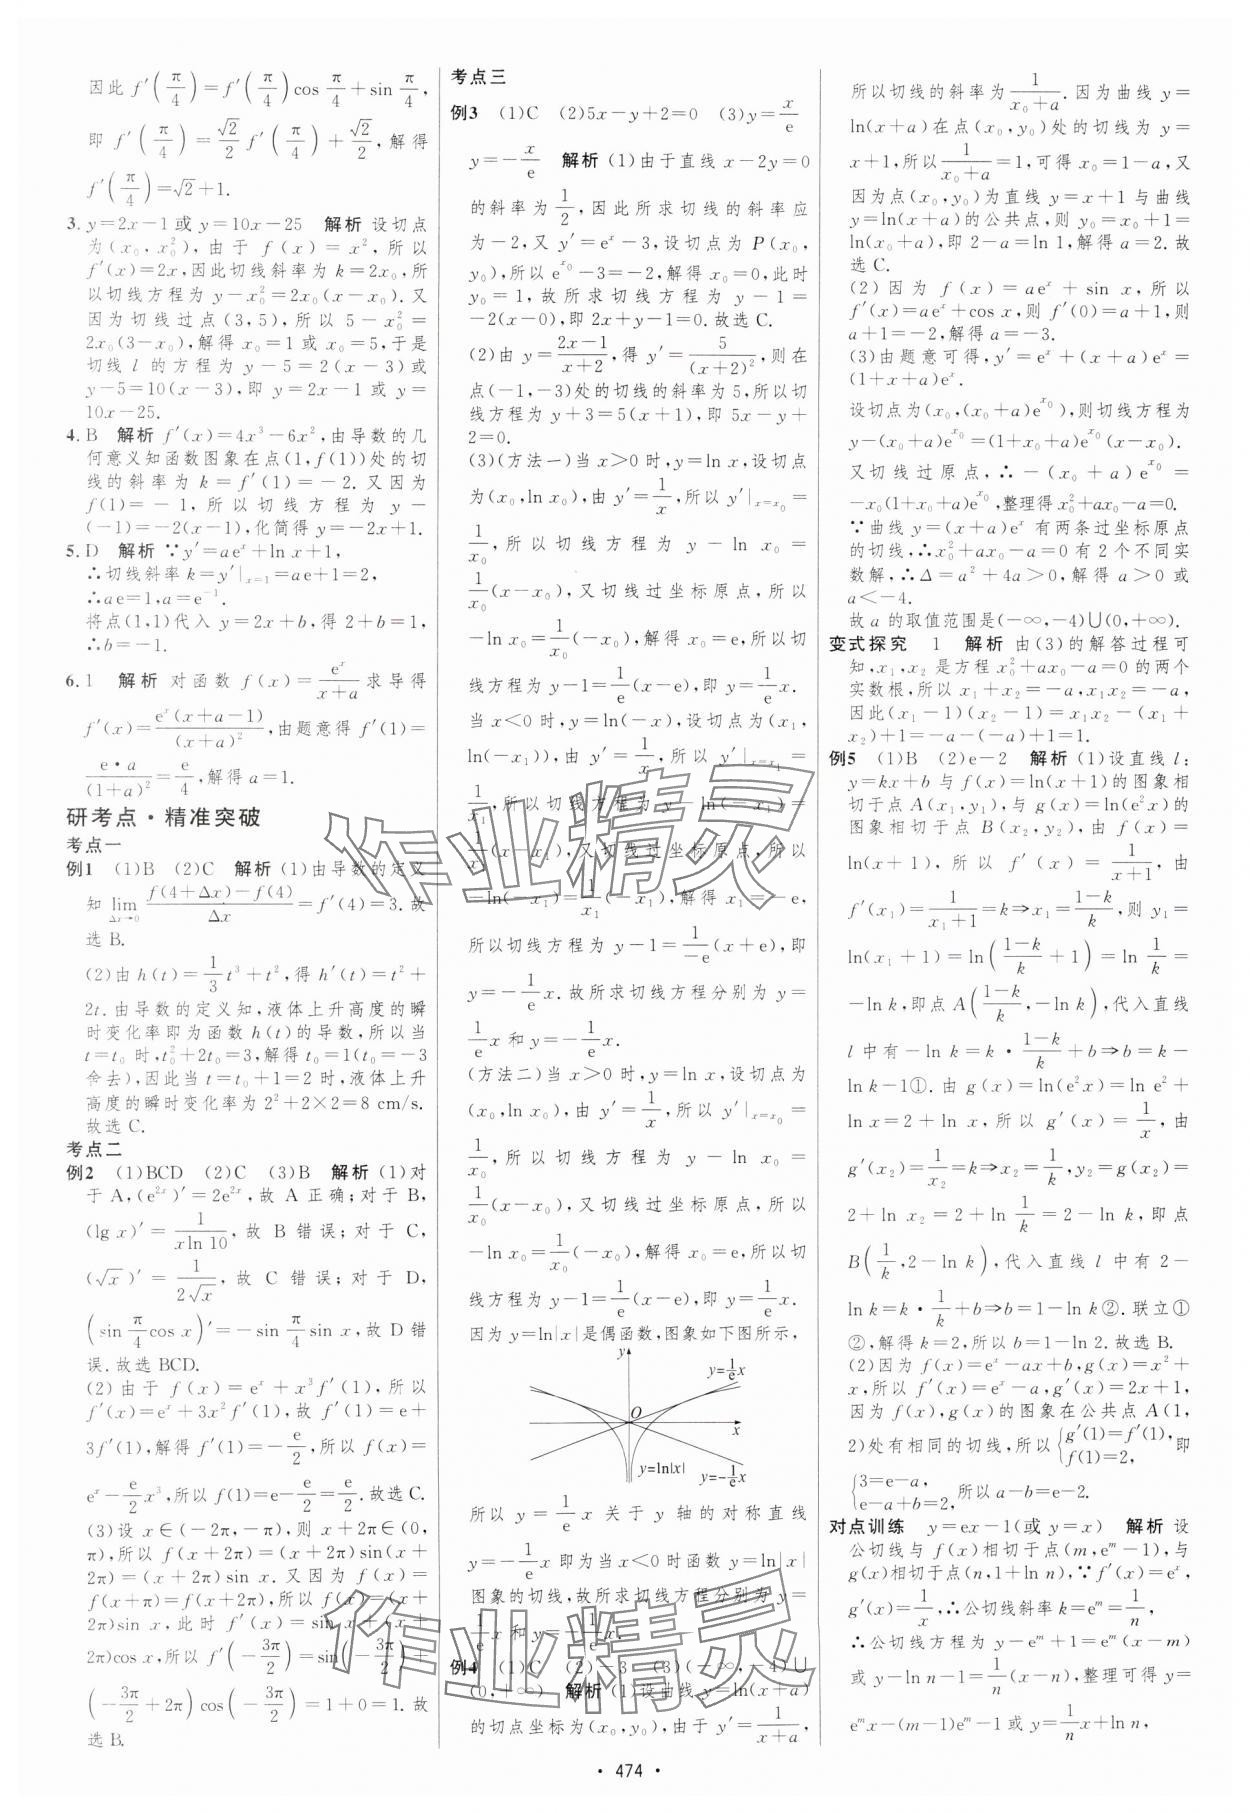 因此 f′(π/4)=f′(π/4)cos π/4+sin π/4,
即 f′(π/4)=√2/2 f′(π/4)+√2/2,解得
f′(π/4)=√2+1.
3. y=2x-1或y=10x-25 解析 设切点
为(x₀,x₀²),由于 f(x)=x²,所以
f′(x)=2x,因此切线斜率为k=2x₀,所
以切线方程为 y-x₀²=2x₀(x-x₀).又
因为切线过点(3,5),所以 5-x₀²=
2x₀(3-x₀),解得 x₀=1 或 x₀=5,于是
切线 l 的方程为 y-5=2(x-3)或
y-5=10(x-3),即 y=2x-1 或 y=
10x-25.
4. B 解析 f′(x)=4x³-6x²,由导数的几
何意义知函数图象在点(1,f(1))处的切
线的斜率为 k=f′(1)=-2.又因为
f(1)=-1,所以切线方程为 y-
(-1)=-2(x-1),化简得 y=-2x+1.
5. D 解析 ∵y′=aeˣ+ln x+1,
∴切线斜率k=y′|ₓ₌₁=ae+1=2,
∴ae=1,a=e⁻¹.
将点(1,1)代入 y=2x+b,得 2+b=1,
∴b=-1.
6. 1 解析 对函数 f(x)=eˣ/(x+a)求导得
f′(x)=eˣ(x+a-1)/(x+a)²,由题意得 f′(1)=
e·a/(1+a)²=e/4,解得 a=1.
研考点·精准突破
考点一
例1 (1)B (2)C 解析 (1)由导数的定义
知 lim(Δx→0) [f(4+Δx)-f(4)]/Δx=f′(4)=3.故
选 B.
(2)由 h(t)=1/3 t³+t²,得 h′(t)=t²+
2t.由导数的定义知,液体上升高度的瞬
时变化率即为函数 h(t)的导数,所以当
t=t₀ 时,t₀²+2t₀=3,解得 t₀=1(t₀=-3
舍去),因此当 t=t₀+1=2 时,液体上升
高度的瞬时变化率为 2²+2×2=8 cm/s.
故选 C.
考点二
例2 (1)BCD (2)C (3)B 解析 (1)对
于 A,(e²ˣ)′=2e²ˣ,故 A 正确;对于 B,
(lg x)′=1/(xln 10),故 B 错误;对于 C,
(√x)′=1/(2√x),故 C 错误;对于 D,
(sin π/4 cos x)′=-sin π/4 sin x,故 D 错
误.故选 BCD.
(2)由于 f(x)=eˣ+x³f′(1),所以
f′(x)=eˣ+3x²f′(1),故 f′(1)=e+
3f′(1),解得 f′(1)=-e/2,所以 f(x)=
eˣ-e/2 x³,所以 f(1)=e-e/2=e/2.故选C.
(3)设 x∈(-2π,-π),则 x+2π∈(0,
π),所以 f(x+2π)=(x+2π)sin(x+
2π)=(x+2π)sin x.又因为 f(x)=
f(x+π)=f(x+2π),所以 f(x)=(x+
2π)sin x,此时 f′(x)=sin x+(x+
2π)cos x,所以 f′(-3π/2)=sin(-3π/2)+
(-3π/2+2π)cos(-3π/2)=1+0=1.故
选 B.
考点三
例3 (1)C (2)5x-y+2=0 (3)y=x/e
y=-x/e 解析 (1)由于直线 x-2y=0
的斜率为1/2,因此所求切线的斜率应
为-2,又 y′=eˣ-3,设切点为 P(x₀,
y₀),所以e^x₀-3=-2,解得 x₀=0,此时
y₀=1,故所求切线方程为 y-1=
-2(x-0),即2x+y-1=0.故选C.
(2)由 y=(2x-1)/(x+2),得 y′=5/(x+2)²,则在
点(-1,-3)处的切线的斜率为5,所以切
线方程为 y+3=5(x+1),即 5x-y+
2=0.
(3)(方法一)当 x>0 时,y=ln x,设切点
为(x₀,ln x₀),由 y′=1/x,所以 y′|ₓ₌ₓ₀=
1/x₀,所以切线方程为 y-ln x₀=
1/x₀(x-x₀),又切线过坐标原点,所以
-ln x₀=1/x₀(-x₀),解得 x₀=e,所以切
线方程为 y-1=1/e(x-e),即 y=1/e x.
当 x<0 时,y=ln(-x),设切点为(x₁,
ln(-x₁)),由 y′=1/x,所以 y′|ₓ₌ₓ₁=
1/x₁,所以切线方程为 y-ln(-x₁)=
1/x₁(x-x₁),又切线过坐标原点,所以
-ln(-x₁)=1/x₁(-x₁),解得 x₁=-e,
所以切线方程为 y-1=1/-e(x+e),即
y=-1/e x.故所求切线方程分别为 y=
1/e x 和 y=-1/e x.
(方法二)当 x>0 时,y=ln x,设切点为
(x₀,ln x₀),由 y′=1/x,所以 y′|ₓ₌ₓ₀=
1/x₀,所以切线方程为 y-ln x₀=
1/x₀(x-x₀),又切线过坐标原点,所以
-ln x₀=1/x₀(-x₀),解得 x₀=e,所以切
线方程为 y-1=1/e(x-e),即 y=1/e x.
因为 y=ln|x|是偶函数,图象如下图所示,
y
y=1/e x
O
x
y=ln|x|
y=-1/e x
所以 y=1/e x 关于 y 轴的对称直线
y=-1/e x 即为当 x<0 时函数 y=ln|x|
图象的切线,故所求切线方程分别为 y=
1/e x 和 y=-1/e x.
例4 (1)C (2)-3 (3)(-∞,-4)∪
(0,+∞) 解析 (1)设曲线 y=ln(x+a)
的切点坐标为(x₀,y₀),由于 y′=1/(x+a),
所以切线的斜率为1/(x₀+a).因为曲线 y=
ln(x+a)在点(x₀,y₀)处的切线为 y=
x+1,所以1/(x₀+a)=1,可得 x₀=1-a,又
因为点(x₀,y₀)为直线 y=x+1 与曲线
y=ln(x+a)的公共点,则 y₀=x₀+1=
ln(x₀+a),即 2-a=ln 1,解得 a=2.故
选 C.
(2)因为 f(x)=aeˣ+sin x,所以
f′(x)=aeˣ+cos x,则 f′(0)=a+1,则
a+1=-2,解得 a=-3.
(3)由题意可得,y′=eˣ+(x+a)eˣ=
(1+x+a)eˣ.
设切点为(x₀,(x₀+a)e^x₀),则切线方程为
y-(x₀+a)e^x₀=(1+x₀+a)e^x₀(x-x₀).
又切线过原点,∴-(x₀+a)e^x₀=
-x₀(1+x₀+a)e^x₀,整理得x₀²+ax₀-a=0.
∵曲线 y=(x+a)eˣ 有两条过坐标原点
的切线,∴x₀²+ax₀-a=0 有 2 个不同实
数解,∴Δ=a²+4a>0,解得 a>0 或
a<-4.
故 a 的取值范围是(-∞,-4)∪(0,+∞).
变式探究 1 解析 由(3)的解答过程可
知,x₁,x₂ 是方程 x₀²+ax₀-a=0 的两个
实数根,所以 x₁+x₂=-a,x₁x₂=-a,
因此(x₁-1)(x₂-1)=x₁x₂-(x₁+
x₂)+1=-a-(-a)+1=1.
例5 (1)B (2)e-2 解析 (1)设直线 l:
y=kx+b 与 f(x)=ln(x+1)的图象相
切于点 A(x₁,y₁),与 g(x)=ln(e²x)的
图象相切于点 B(x₂,y₂),由 f(x)=
ln(x+1),所以 f′(x)=1/(x+1),由
f′(x₁)=1/(x₁+1)=k⇒x₁=(1-k)/k,则 y₁=
ln(x₁+1)=ln((1-k)/k+1)=ln 1/k=
-ln k,即点A((1-k)/k,-ln k),代入直线
l 中有-ln k=k·(1-k)/k+b⇒b=
ln k-1①.由 g(x)=ln(e²x)=ln e²+
ln x=2+ln x,所以 g′(x)=1/x,由
g′(x₂)=1/x₂=k⇒x₂=1/k,y₂=g(x₂)=
2+ln x₂=2+ln 1/k=2-ln k,即点
B(1/k,2-ln k),代入直线 l 中有 2-
ln k=k·1/k+b⇒b=1-ln k②.联立①
②,解得 k=2,所以 b=1-ln 2.故选 B.
(2)因为 f(x)=eˣ-ax+b,g(x)=x²+
x,所以 f′(x)=eˣ-a,g′(x)=2x+1,
因为 f(x),g(x)的图象在公共点 A(1,
2)处有相同的切线,所以{g′(1)=f′(1), f(1)=2,即
{3=e-a, e-a+b=2,所以a-b=e-2.
对点训练 y=ex-1(或 y=x) 解析 设
公切线与 f(x)相切于点(m,eᵐ-1),与
g(x)相切于点(n,1+ln n),∵f′(x)=eˣ,
g′(x)=1/x,∴公切线斜率 k=eᵐ=1/n,
∴公切线方程为 y-eᵐ+1=eᵐ(x-m)
或 y-ln n-1=1/n(x-n),整理可得 y=
eᵐx-(m-1)eᵐ-1或 y=1/n x+ln n,
作业精灵
作业精灵
· 474 ·